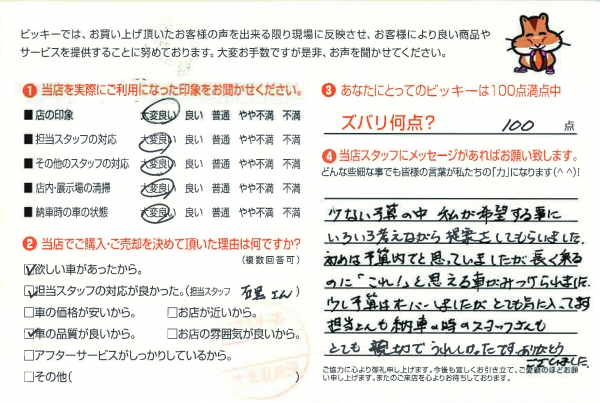 ビッキーでは、お買い上げ頂いたお客様の声を出来る限り現場に反映させ、お客様により良い商品や
サービスを提供することに努めております。大変お手数ですが是非、お声を聞かせてください。
❶ 当店を実際にご利用になった印象をお聞かせください。
■店の印象 大変良い 良い 普通 やや不満 不満
■担当スタッフの対応 大変良い 良い 普通 やや不満 不満
■その他のスタッフの対応 大変良い 良い 普通 やや不満 不満
■店内・展示場の清掃 大変良い 良い 普通 やや不満 不満
■納車時の車の状態 大変良い 良い 普通 やや不満 不満
❷ 当店でご購入・ご売却を決めて頂いた理由は何ですか?
(複数回答可)
☑欲しい車があったから。
☑担当スタッフの対応が良かった。(担当スタッフ さん)
□車の価格が安いから。 □お店が近いから。
☑車の品質が良いから。 □お店の雰囲気が良いから。
□アフターサービスがしっかりしているから。
□その他( )
❸ あなたにとってのビッキーは100点満点中
ズバリ何点? 100 点
❹ 当店スタッフにメッセージがあればお願い致します。
どんな些細な事でも皆様の言葉が私たちの「力」になります(^ ^)!
少ない予算の中 私が希望する事に
いろいろ考えながら 提案をしてもらいました
初めは予算内でと思っていましたが 長く乗る
のに「これ!」と思える車がみつけられました
少し予算はオーバーしましたが とても気に入ってます
担当さんも納車の時のスタッフさんも
とても 親切で うれしかったです。ありがとう
ございました。
ご協力に心より御礼申し上げます。今後も宜しくお引き立て、ご愛顧のほどお願
い申し上げます。またのご来店を心よりお待ちしております。